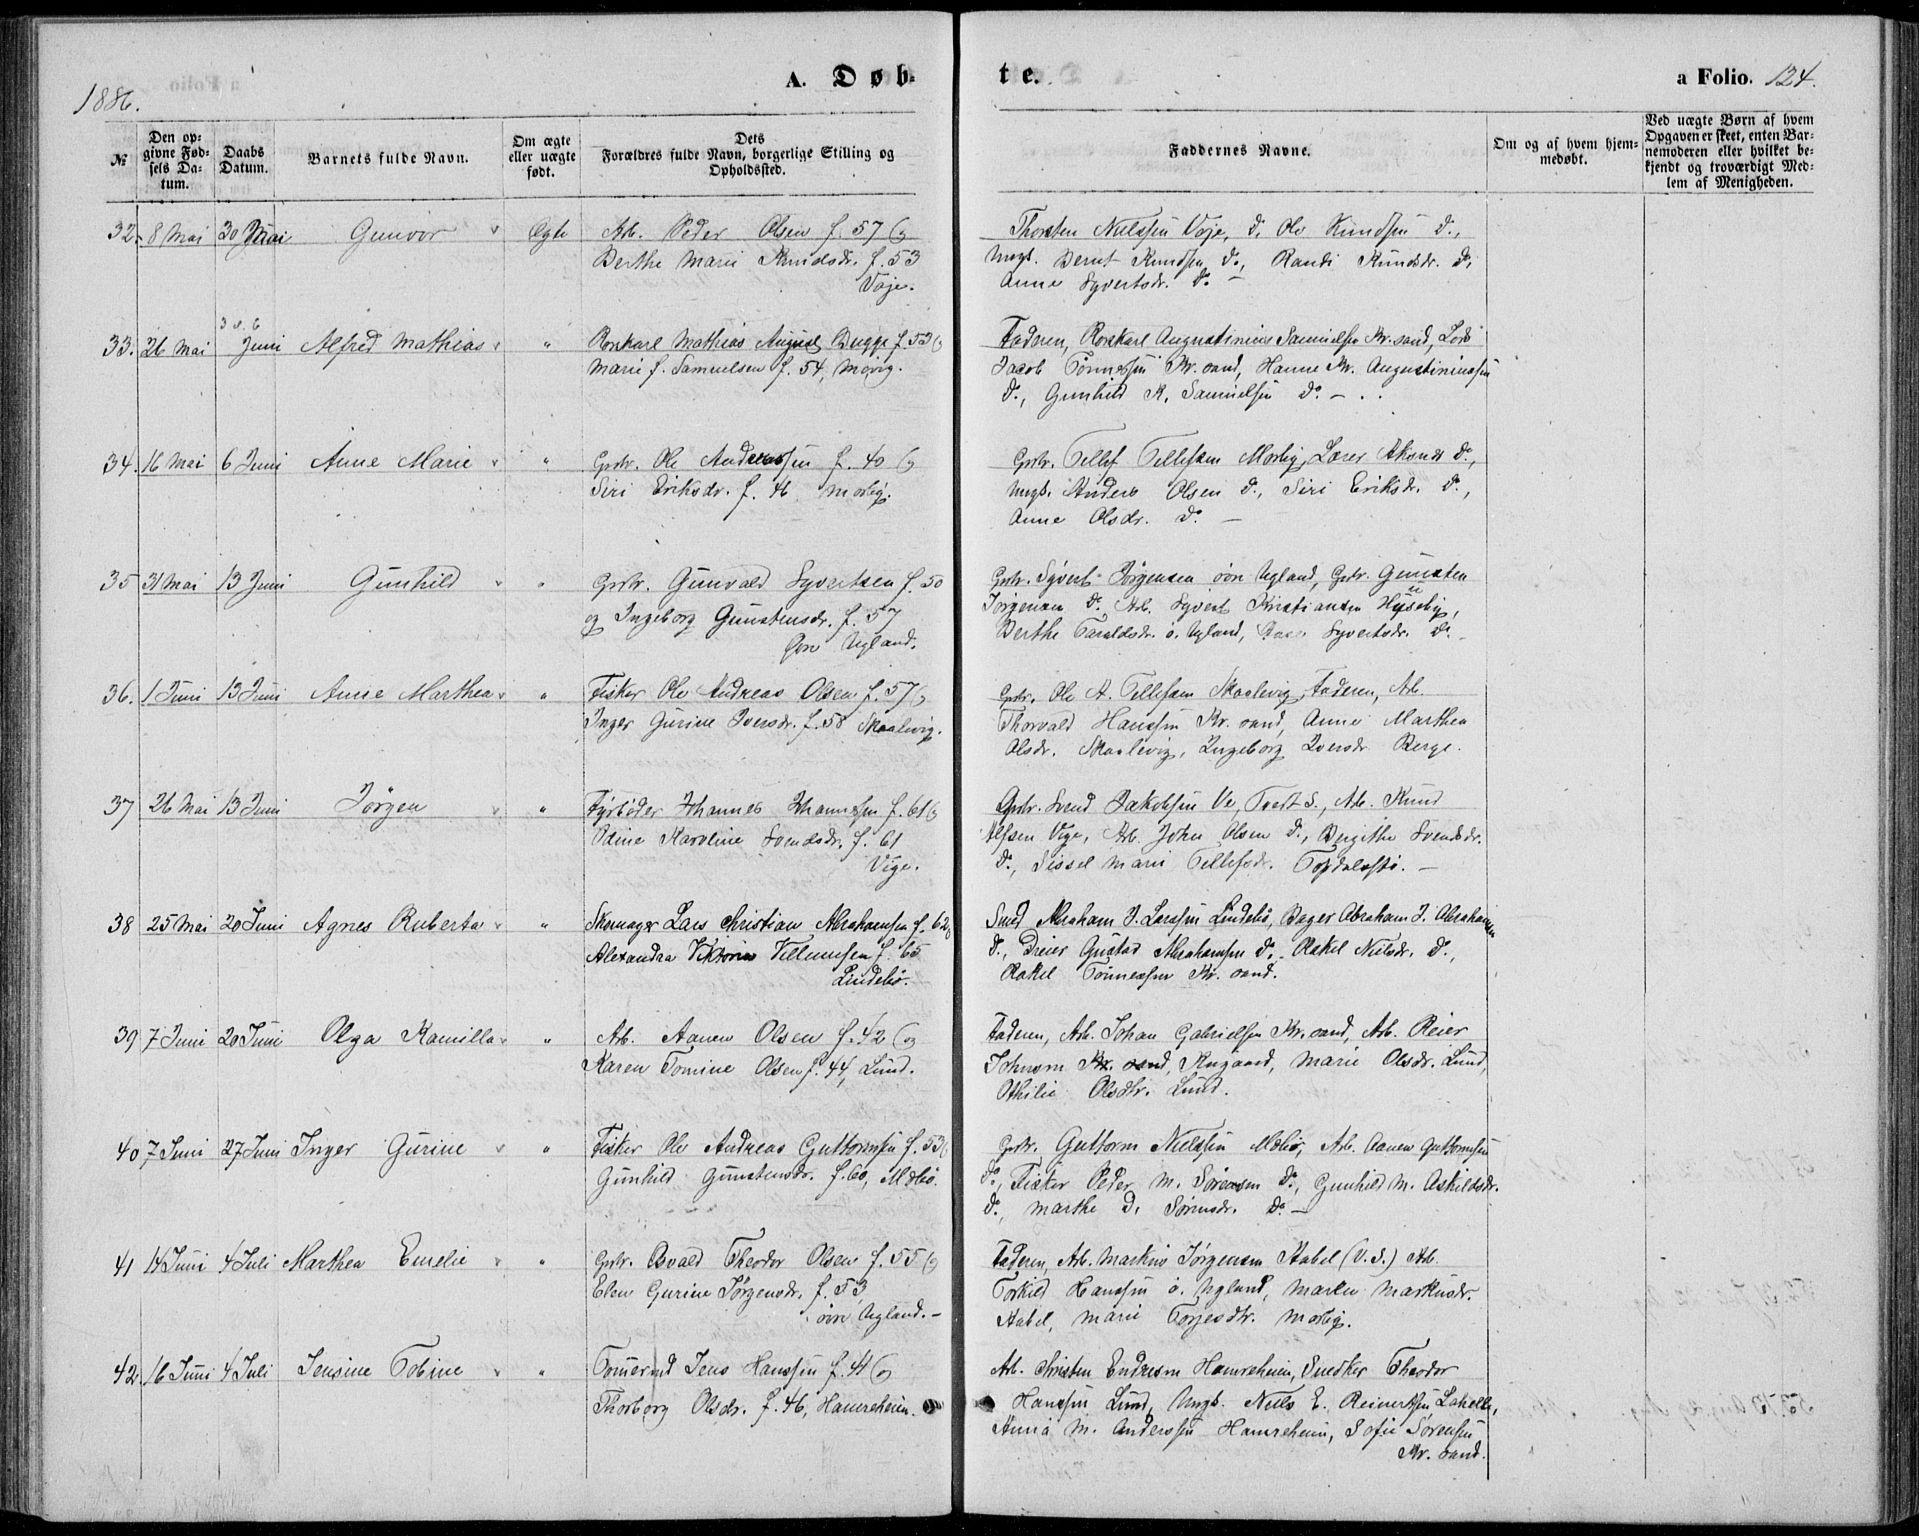 1886.
A. Døb-
te.
a Folio. 124.
№
Den op-
givne Fød-
sels Da-
tum.
Daabs
Datum.
Barnets fulde Navn.
Om ægte
eller uægte
født.
Dets
Forældres fulde Navn, borgerlige Stilling og
Opholdssted.
Faddernes Navne.
Om og af hvem hjem-
medøbt.
Ved uægte Børn af hvem
Opgaven er skeet, enten Bar-
nemoderen eller hvilket be-
kjendt og troværdigt Med-
lem af Menigheden.
32. 8 Mai 30 Mai Gunvor " Ægte Arb. Peder Olsen f. 57 og
Berthe Marie Knudsdr. f. 53
Voje.
Thorsten Nielssen Voje, do, Ole Knudsen do.,
Ungk. Bernt Knudsen do., Randi Knudsdr. do,
Anne Syvertsdr. do. –
33. 26 Mai 6 Juni Alfred Mathias " " Rorskarl Mathias August Bugge f. 53 og
Marie f. Samuelsen f. 54, Movig.
Faderen, Rorskarl Augustinius Samuelsen Kr.sand, Lods
Jacob Tønnessen Kr.sand, Hanne Kr. Augustiniussen
do., Gunhild K. Samuelsen do. –
34. 16 Mai 6 Juni Anne Marie " " Grdr. Ole Andreassen f. 40 og
Siri Eriksdr. f. 46 Mosbÿ.
Grdr. Tellef Tellefsen Mosby, Lærer Aksnes do.,
Ungk. Anders Olsen do., Siri Eriksdr. do.,
Anne Olsdr. do. –
35 31 Mai 13 Juni Gunhild " " Grdr. Gunvald Syvertsen f. 50
og Ingeborg Gunstensdr. f. 57
Øvre Ugland.
Grdr. Sÿvert Jørgensen øvr. Ugland, Grdr. Gunsten
Jørgensen do. Arb. Syvert Kristiansen Hyseby,
Berthe Taraldsdr. ø. Ugland, Syvertsdr. do. –
36. 1 Juni 13 Juni Anne Marthea " " Fisker Ole Andreas Olsen f. 57 og
Inger Gurine Iversdr. f. 58 Skaalevig.
Grdr. Ole A. Tellefsen Skaalevig, Faderen, Arb.
Thorvald Hanssen Kr.sand, Anne Marthea
Olsdr. Skaalevig, Ingeborg Iversdr. Berge.
37 26 Mai 13 Juni Jörgen " " Fyrbøder Johannes Johannessen f. 61 og
Odine Karoline Svendsdr. f. 61
Vige.
Grdr. Svend Jakobsen Ve, Tveit S., Arb. Knud
Alfsen Vige, Arb. John Olsen do., Bergithe Svendsdr.
do., Sissel Marie Tellefsdr. Topdalsfjø. –
38 25 Mai 20 Juni Agnes Ruberta " " Skomager Lars Christian Abrahamsen f. 62 og
Alexandra Viktoria Villumsen f. 65
Lindebø.
Smed Abraham J. Larssen Lindebø, Bager Abraham J. Abrahamsen
do., Dreier Gustav Abrahamsen do. Rakel Nielsdr. do.,
Rakel Tönnessen Kr.sand.
39 7 Juni 20 Juni Olga Kamilla " " Arb. Aanen Olsen f. 42 og
Karen Tomine Olsen f. 44, Lund.
Faderen, Arb. Johan Gabrielsen Kr.sand, Arb. Reier
Johnsen Kr.sand, Krogaard, Marie Olsdr. Lund,
Othilie Olsdtr. Lund.
40 7 Juni 27 Juni Inger Gurine " " Fisker Ole Andreas Guttormsen f. 53 og
Gunhild Gunstensdr. f. 60, Mebø.
Grdr. Guttorm Nielssen Mebø, Arb. Aanen Guttormsen
do., Fisker Peder M. Sørensen do., Gunhild M. Askildsdr.
do., Marthe D. Sørensdr. do. –
41 14 Juni 4 Juli Marthea Emelie " " Grdr. Osvald Theodor Olsen f. 55 og
Elen Gurine Jørgensdr. f. 53
øvre Ugland. –
Faderen, Arb. Markus Jørgensen Stabel (V.S.) Arb.
Torkild Hanssen ø. Ugland, Marthe Markusdr.
Stabel, Marie Torjesdtr. Mosby.
42 16 Juni 4 Juli Jensine Tobine " " Tømmermd Jens Hanssen f. 41 og
Thorborg Olsdr. f. 46, Hamreheien.
Arb. Christen Endresen Hamreheien, Snedker Theodor
Hanssen Lund, Ungk. Niels E. Reinertsen Lahelle,
Anna M. Anderssen Hamreheien, Sofie Sørensen
Kr.sand.